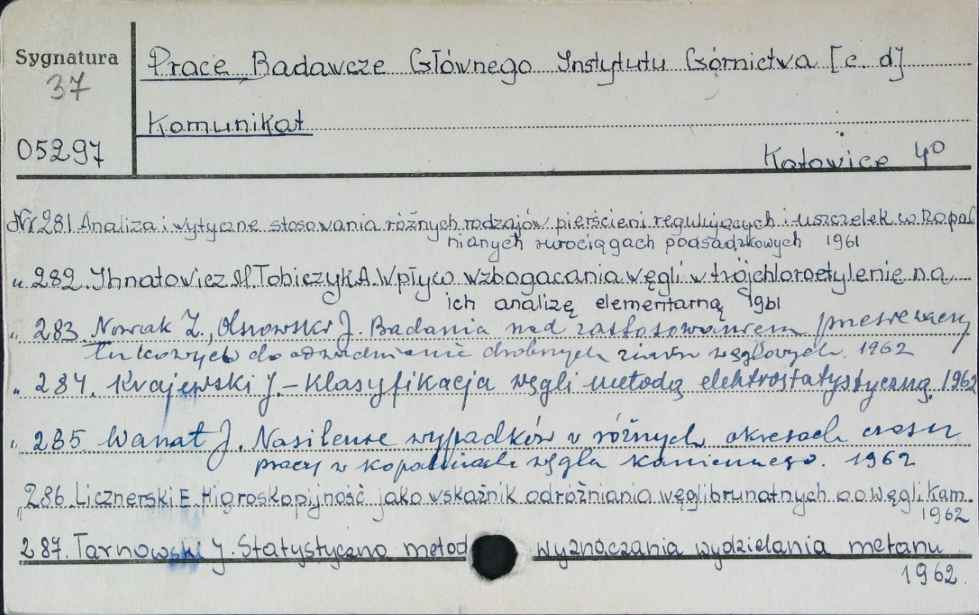 Sygnatura
37
05297
Prace Badawcze Głównego Instytutu Górnictwa [c. d]
Komunikat
Katowice 4º
Nr 281 Analiza i wytyczne stosowania różnych rodzajów pierścieni regulujących i uszczelek w kopal
nianych rurociągach podsadzkowych 1961
" 282. Ihnatowicz M. Tobiczyk A. Wpływ wzbogacania węgli w trójchloroetylenie na
ich analizę elementarną 1961
" 283. Nowak Z., Olszowski J. Badania nad zastosowaniem
do odwadniania drobnych ziarn węglowych. 1962
" 284. Krajewski J. - Klasyfikacja węgli metodą elektrostatystyczną. 1962
" 285 Wanat J. Nasilenie wypadków w różnych okresach czasu
pracy w kopalniach węgla kamiennego. 1962
" 286. Licznerski E. Higroskopijność jako wskaźnik odróżniania węgli brunatnych od węgli kam.
1962
287. Tarnowski J. Statystyczna metod wyznaczania wydzielania metanu
1962.